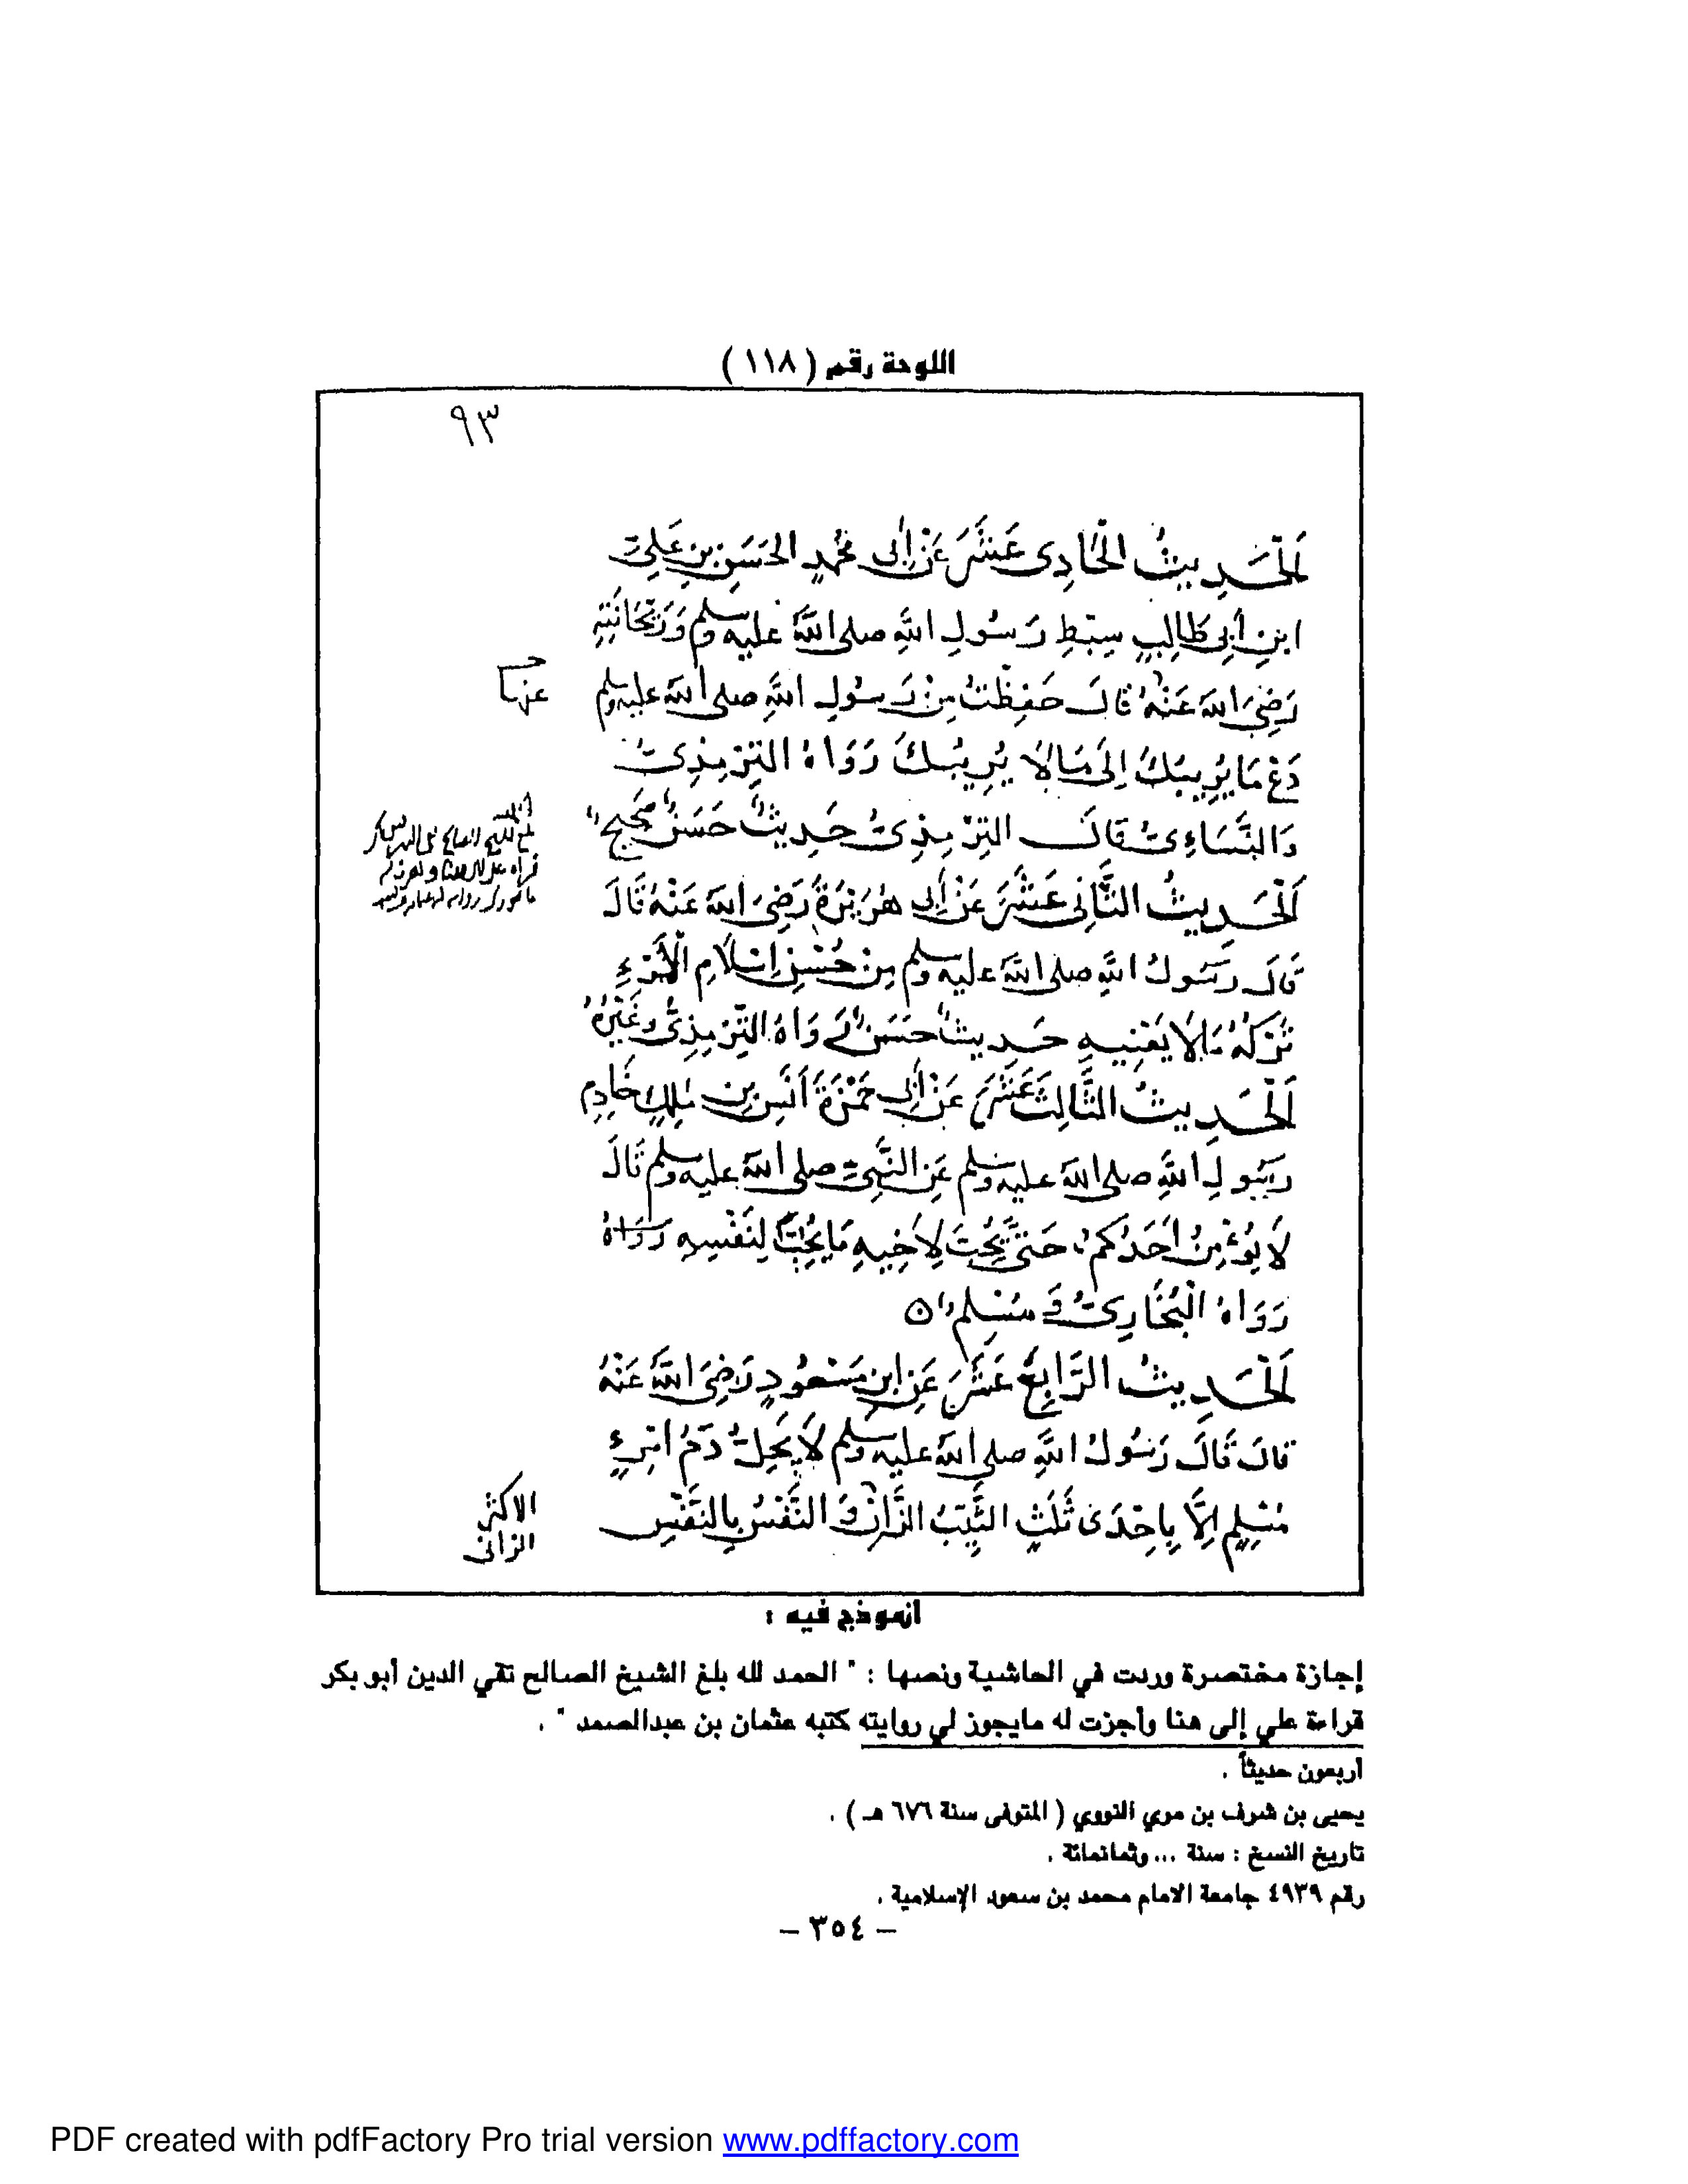 اللوحة رقم ( ١١٨ )
٩٣
اَلْحَدِيثُ الْحَادِى عَشَرَ عَنْ أَبِى مُحَمَّدٍ الحَسَنِ بنِ عَلِىِّ
ابنِ أَبِى طَالِبٍ سِبْطِ رَسُولِ اللهِ صلى الله عليه وسلم وَرَيْحَانَتِهِ
رَضِىَ الله عَنْهُ قَالَ حَفِظْتُ مِنْ رَسُولِ اللهِ صلى الله عليه وسلم
عنهما
دَعْ مَا يُرِيبُكَ إِلَى مَا لَا يُرِيبُكَ رَوَاهُ التِّرْمِذِىُّ
وَالنَّسَاءِىُّ قَالَ التِّرْمِذِىُّ حَدِيثٌ حَسَنٌ صَحِيحٌ
الحمد لله
بلغ الشيخ الصالح تقي الدين أبو بكر
قراءة علي إلى هنا وأجزت له
ما يجوز لي روايته كتبه عثمان بن عبد الصمد
اَلْحَدِيثُ الثَّانِى عَشَرَ عَنْ أَبِى هُرَيْرَةَ رَضِىَ الله عَنْهُ قَالَ
قَالَ رَسُولُ اللهِ صلى الله عليه وسلم مِنْ حُسْنِ إِسْلَامِ الْمَرْءِ
تَرْكُهُ مَا لَا يَعْنِيهِ حَدِيثٌ حَسَنٌ رَوَاهُ التِّرْمِذِىُّ وغَيْرُهُ
اَلْحَدِيثُ الثَّالِثَ عَشَرَ عَنْ أَبِى حَمْزَةَ أَنَسِ بنِ مٰلِكٍ خَادِمِ
رَسُولِ اللهِ صلى الله عليه وسلم عَنِ النَّبِىِّ صلى الله عليه وسلم قَالَ
لَا يُؤْمِنُ أَحَدُكُمْ حَتَّى يُحِبَّ لِأَخِيهِ مَا يُحِبُّ لِنَفْسِهِ رَوَاهُ
رَوَاهُ الْبُخَارِىُّ وَ مُسْلِمٌ ه
اَلْحَدِيثُ الرَّابِعَ عَشَرَ عَنِ ابنِ مَسْعُودٍ رَضِىَ اللهُ عَنْهُ
قَالَ قَالَ رَسُولُ اللهِ صلى الله عليه وسلم لَا يَحِلُّ دَمُ امْرِىءٍ
مُسْلِمٍ إِلَّا بِإِحْدَى ثَلَثٍ الثَّيِّبُ الزَّانِ وَ النَّفْسُ بِالنَّفْسِ
الاكثر
الزانى
أنموذج فيه :
إجازة مختصرة وردت في الحاشية ونصها : " الحمد لله بلغ الشيخ الصالح تقي الدين أبو بكر
قراءة علي إلى هنا وأجزت له مايجوز لي روايته كتبه عثمان بن عبدالصمد " .
أربعون حديثاً .
يحيى بن شرف بن مري النووي ( المتوفى سنة ٦٧٦ هـ ) .
تاريخ النسخ : سنة ... وثمانمائة .
رقم ٤٩٣٩ جامعة الامام محمد بن سعود الإسلامية .
– ٣٥٤ –
PDF created with pdfFactory Pro trial version www.pdffactory.com